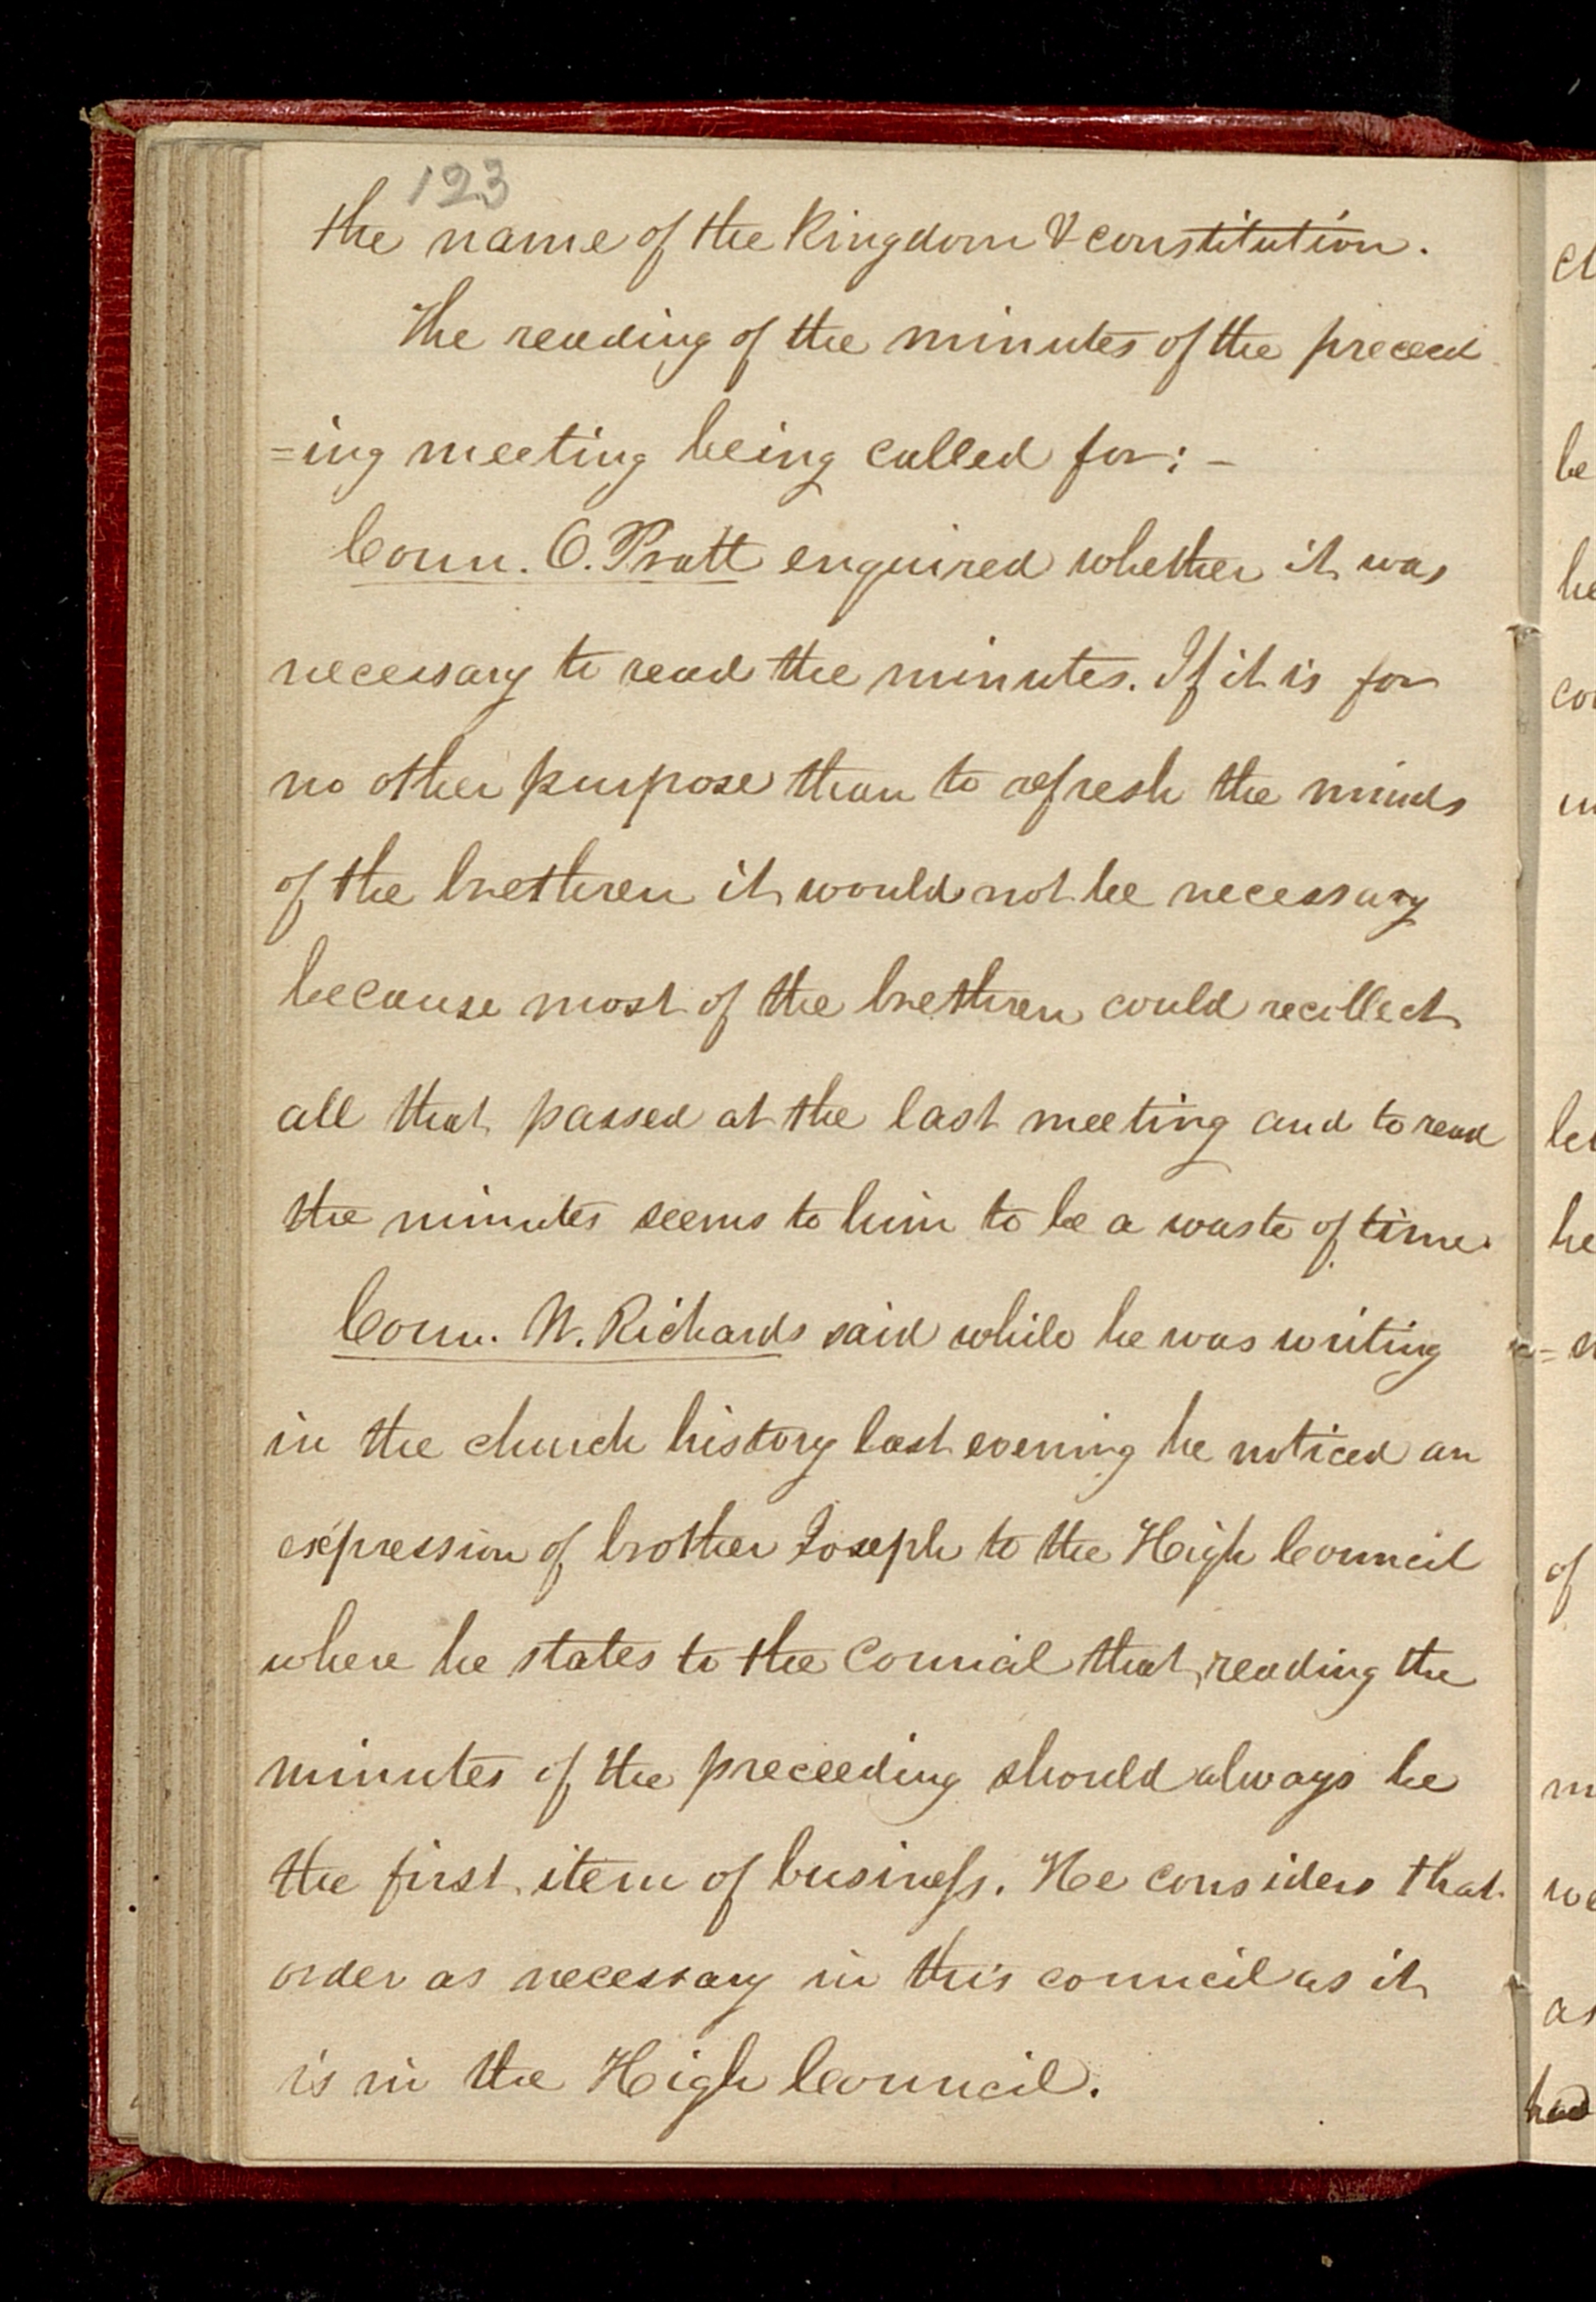 123
the name of the Kingdom & constitution.
The reading of the minutes of the preceed
=ing meeting being called for; -
Coun. O. Pratt enquired whether it was
necessary to read the minutes. If it is for
no other purpose than to refresh the minds
of the brethren it would not be necessary
because most of the brethren could recollect
all that passed at the last meeting and to read
the minutes seems to him to be a waste of time.
Coun. W. Richards said while he was writing
in the church history last evening he noticed an
expression of brother Joseph to the High Council
where he states to the Council that reading the
minutes of the preceeding should always be
the first item of business. He considers that
order as necessary in this council as it
is in the High Council.